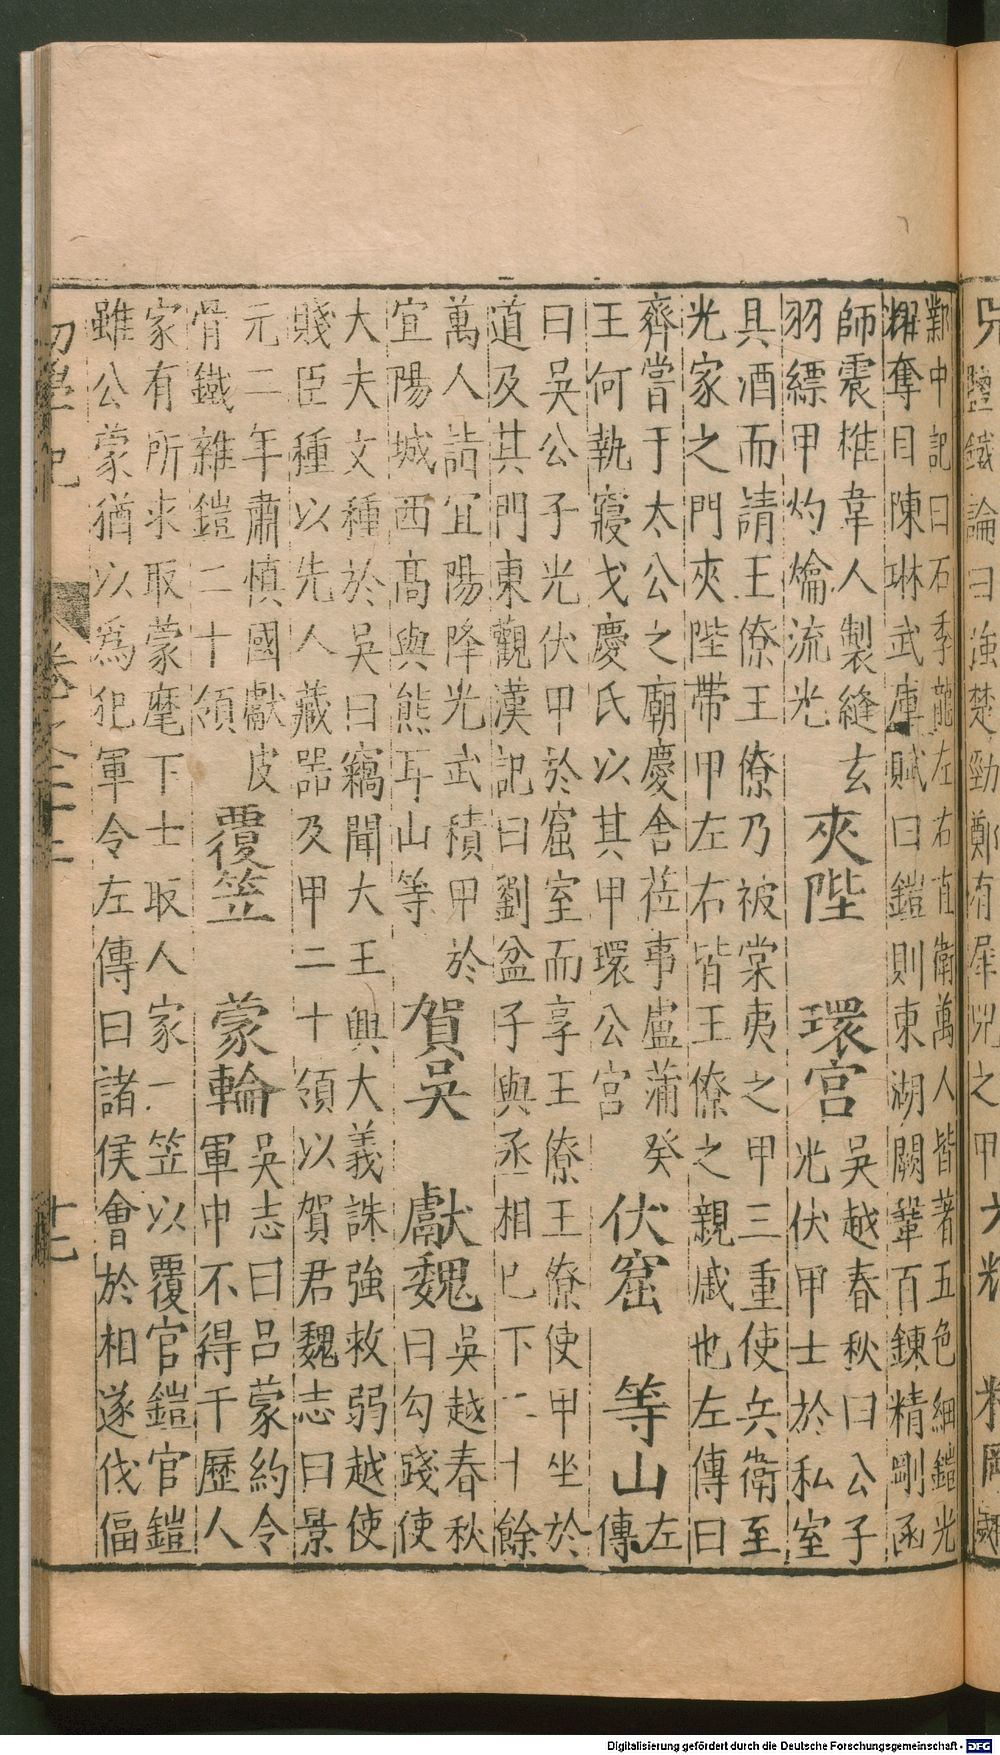 鄴中記曰石季龍左右直衛萬人皆著五色細鎧光
耀奪目陳琳武庫賦曰鎧則東湖闕鞏百鍊精剛函
師震椎韋人製縫玄
羽縹甲灼爚流光
夾陛 環宮
吳越春秋曰公子
光伏甲士於私室
具酒而請王僚王僚乃被棠夷之甲三重使兵衛至
光家之門夾陛帶甲左右皆王僚之親戚也左傳曰
齊嘗于太公之廟慶舍莅事盧蒲癸
王何執寢戈慶氏以其甲環公宮
伏窟 等山
左
傳
曰吳公子光伏甲於窟室而享王僚王僚使甲坐於
道及其門東觀漢記曰劉盆子與丞相已下二十餘
萬人詣宜陽降光武積甲於
宜陽城西高與熊耳山等
賀吳 獻魏
吳越春秋
曰勾踐使
大夫文種於吳曰竊聞大王興大義誅強救弱越使
賤臣種以先人藏器及甲二十領以賀君魏志曰景
元二年肅慎國獻皮
骨鐵雜鎧二十領
覆笠 蒙輪
吳志曰呂蒙約令
軍中不得干歷人
家有所求取蒙麾下士取人家一笠以覆官鎧官鎧
雖公蒙猶以為犯軍令左傳曰諸侯會於相遂伐偪
初學記 卷之二十二 十七
Digitalisierung gefördert durch die Deutsche Forschungsgemeinschaft - DFG